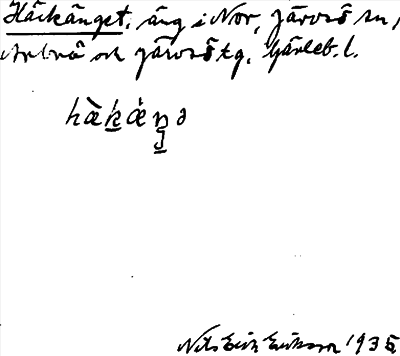 Häckänget, äng i Nor, Järvsö sn,
Arbrå och Järvsö tg, Gävleb. l.
hὰk̲ǽŋ̲ə
Nils Erik Eriksson 1935